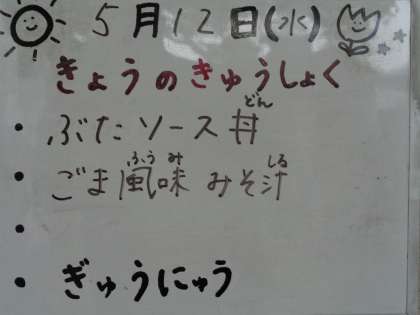 5月12日(水)
きょうのきゅうしょく
・ぶたソース丼
どん
・ごま風味 みそ汁
ふうみ しる
・
・ぎゅうにゅう